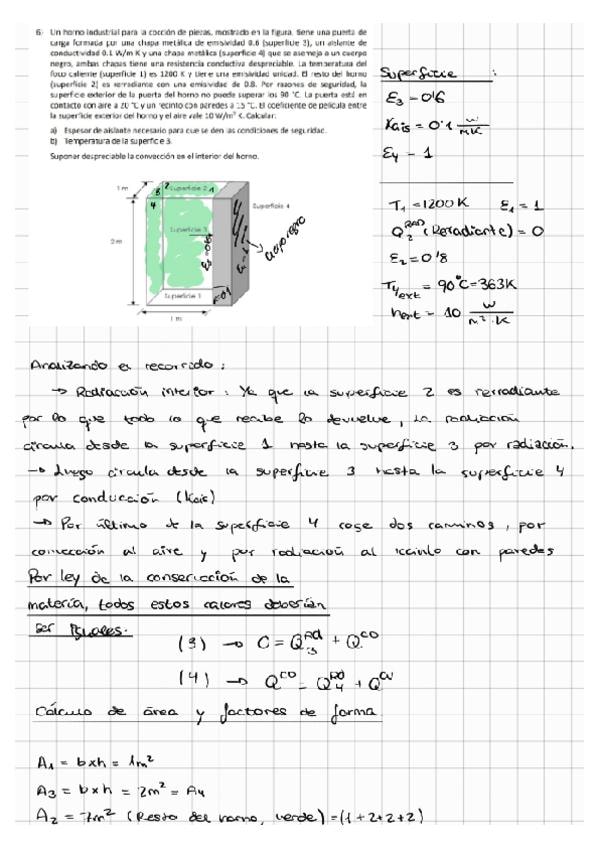 6. Un horno industrial para la cocción de piezas, mostrado en la figura, tiene una puerta de
carga formada por una chapa metálica de emisividad 0.6 (superficie 3), un aislante de
conductividad 0.1 W/m K y una chapa metálica (superficie 4) que se asemeja a un cuerpo
negro, ambas chapas tiene una resistencia conductiva despreciable. La temperatura del
foco caliente (superficie 1) es 1200 K y tiene una emisividad unidad. El resto del horno
(superficie 2) es rerradiante con una emisividad de 0.8. Por razones de seguridad, la
superficie exterior de la puerta del horno no puede superar los 90 °C. La puerta está en
contacto con aire a 20 °C y un recinto con paredes a 15 °C. El coeficiente de película entre
la superficie exterior del horno y el aire vale 10 W/m² K. Calcular:
a) Espesor de aislante necesario para que se den las condiciones de seguridad.
b) Temperatura de la superficie 3.
Suponer despreciable la convección en el interior del horno.
Superficie :
ε3 = 0'6
Kais = 0'1 W/mK
ε4 = 1
T1 = 1200 K ε1 = 1
Q2^RAD (Reradiante) = 0
ε2 = 0'8
T4ext = 90°C = 363K
hext = 10 W/m²·K
1 m
Superficie 2
Superficie 4
Superficie 3
2 m
Cuerpo negro
Superficie 1
1 m
Analizando el recorrido :
→ Radiación interior : Ya que la superficie 2 es rerradiante
por lo que todo lo que recibe lo devuelve, la radiación
circula desde la superficie 1 hasta la superficie 3 por radiación.
→ Luego circula desde la superficie 3 hasta la superficie 4
por conducción (Kais)
→ Por último de la superficie 4 coge dos caminos, por
convección al aire y por radiación al recinto con paredes
Por ley de la conservación de la
materia, todos estos calores deberían
ser iguales.
(3) → C = Q3^RAD + Q^CD
(4) → Q^CD = Q4^RAD + Q^CV
Cálculo de área y factores de forma.
A1 = b×h = 1m²
A3 = b×h = 2m² = A4
A2 = 7m² (Resto del horno, verde) = (1+2+2+2)